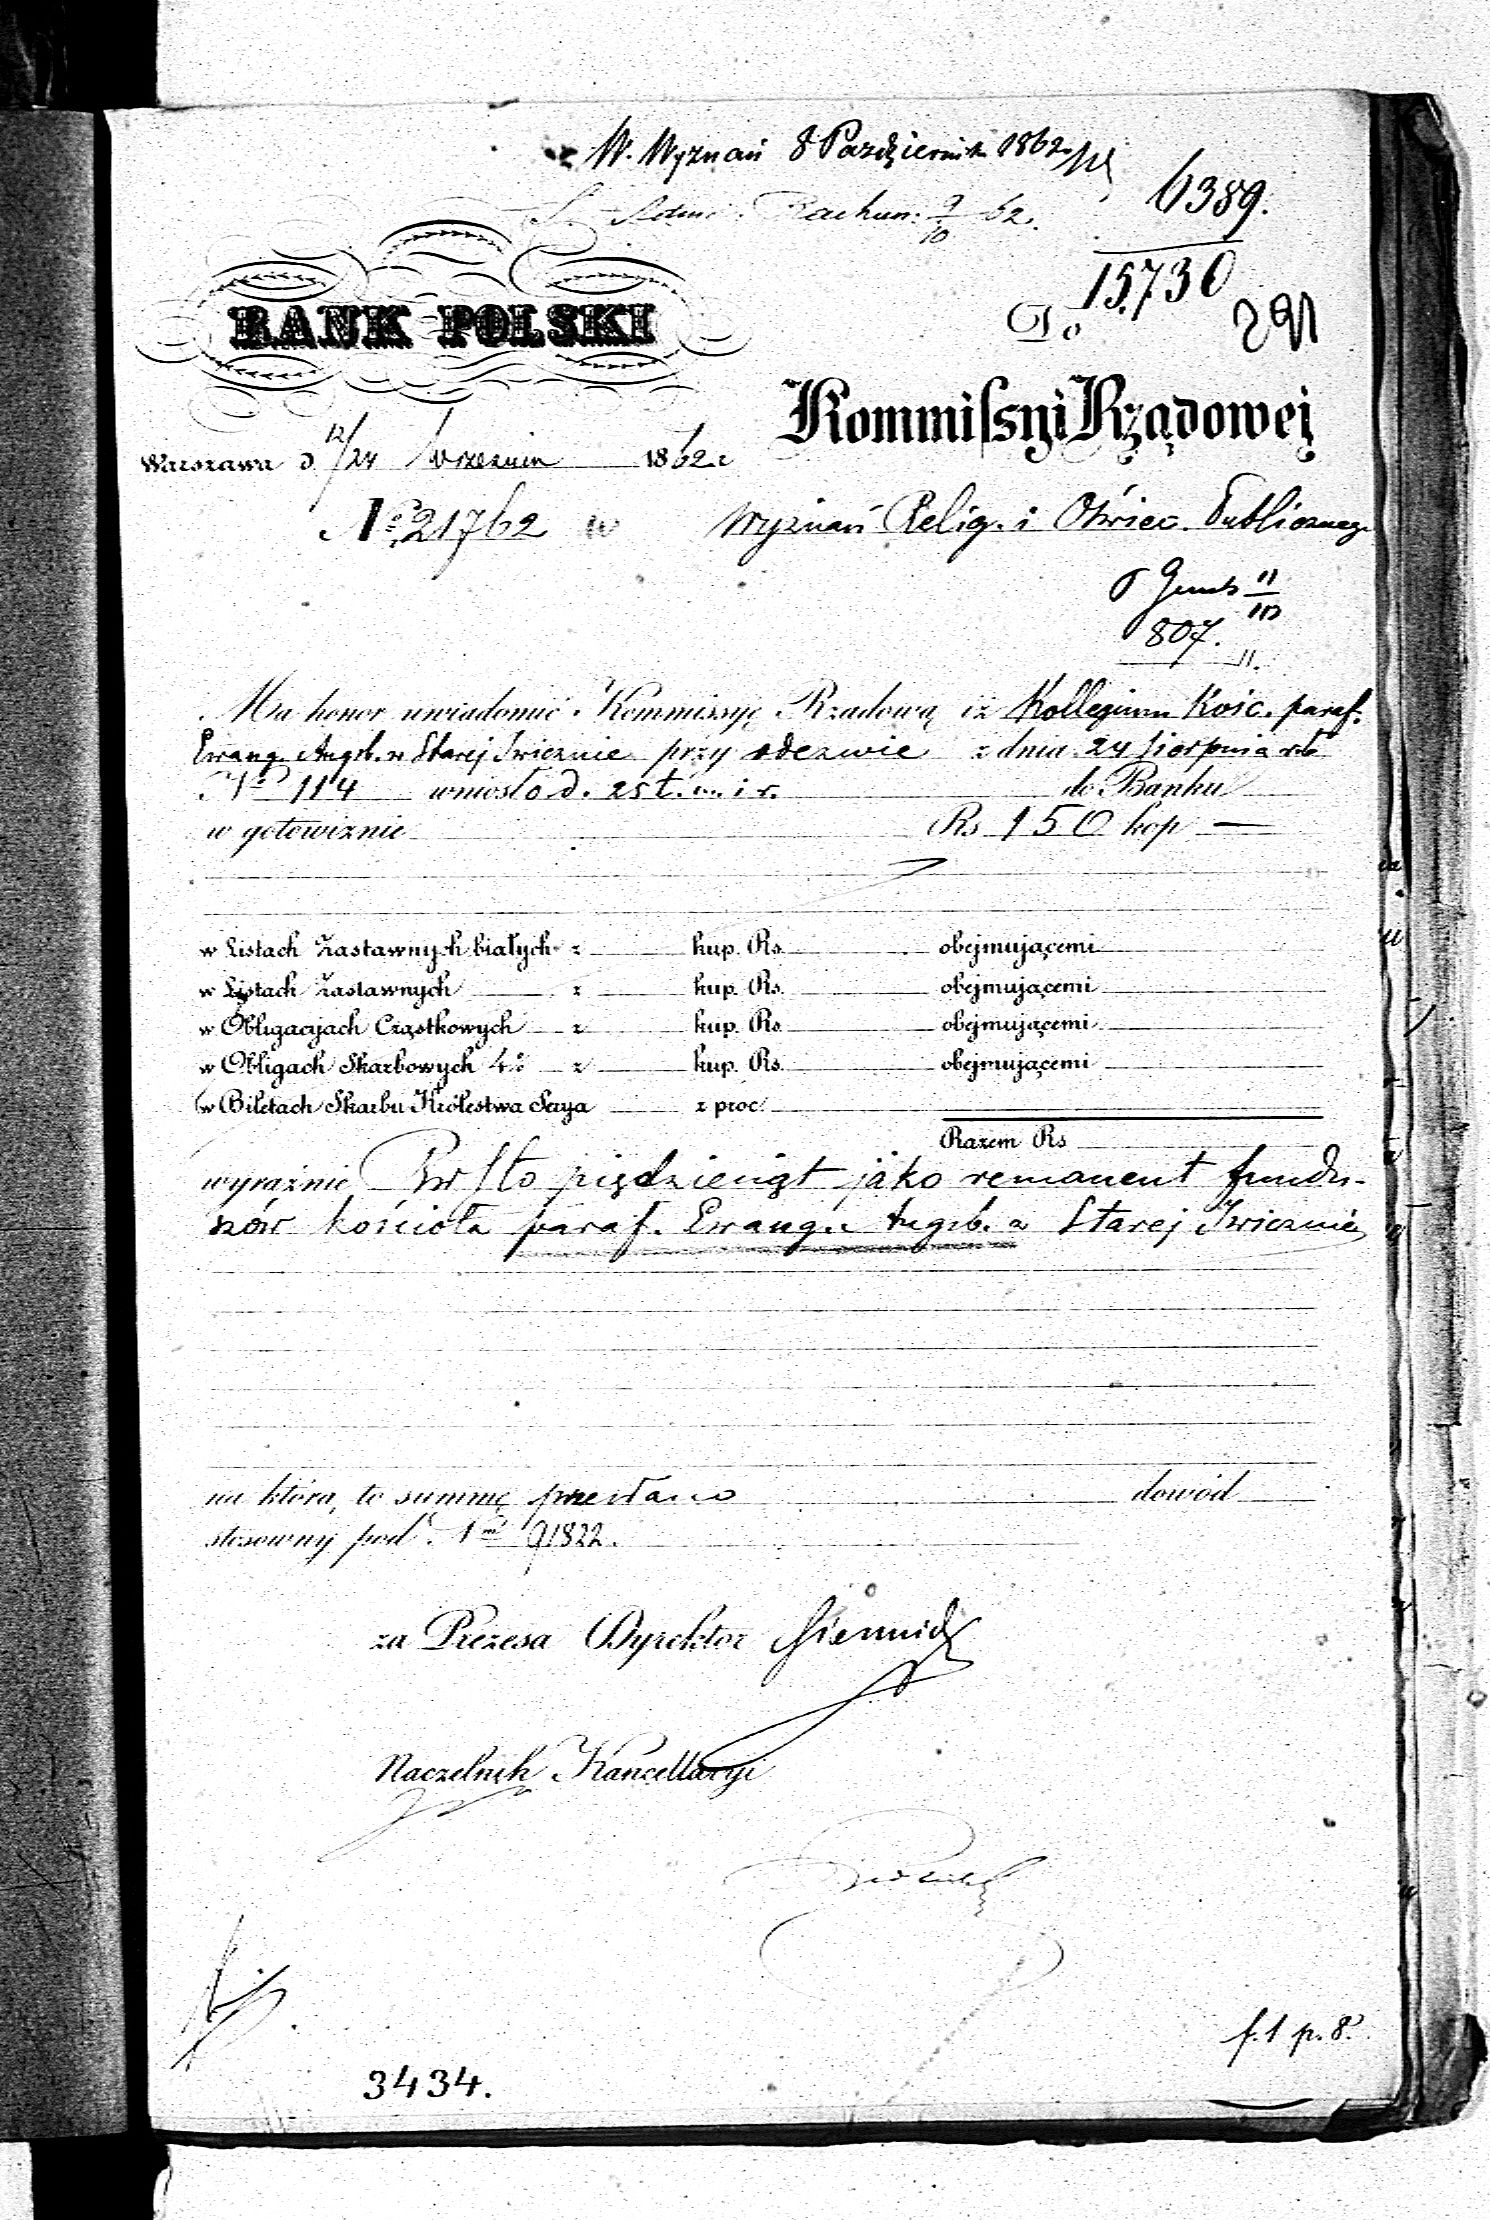 W. Wyznań 8 Październik 1862.
Rachun. 9/10 62.
6389.
15730
291
BANK POLSKI
Do
Kommissyi Rządowej
Warszawa d 12/24 Września 1862 r
No. 21762
Wyznań Relig. i Oświec. Publicznego
807.
Ma honor uwiadomić Kommissyę Rządową iż Kollegium Kośc. paraf.
Ewang. Augsb. w Starej Iwicznie przy odezwie z dnia 24 Sierpnia rb
No 114 wniosło d. 25 t. m. i r. do Banku
w gotowiznie Rs 150 kop —
w Listach Zastawnych białych z kup. Rs. obejmującemi
w Listach Zastawnych z kup. Rs. obejmującemi
w Obligacyjach Cząstkowych z kup. Rs. obejmującemi
w Obligach Skarbowych 4% z kup. Rs. obejmującemi
w Biletach Skarbu Królestwa Serya z proc.
Razem Rs
wyraźnie Rsr Sto pięćdziesiąt jako remanent fundu-
szów kościoła paraf. Ewang. Augsb. w Starej Iwicznie
na którą to summę przesłano dowód
stosowny pod Nm 91822.
za Prezesa Dyrektor
Naczelnik Kancellaryi
f. 1 p. 8.
3434.